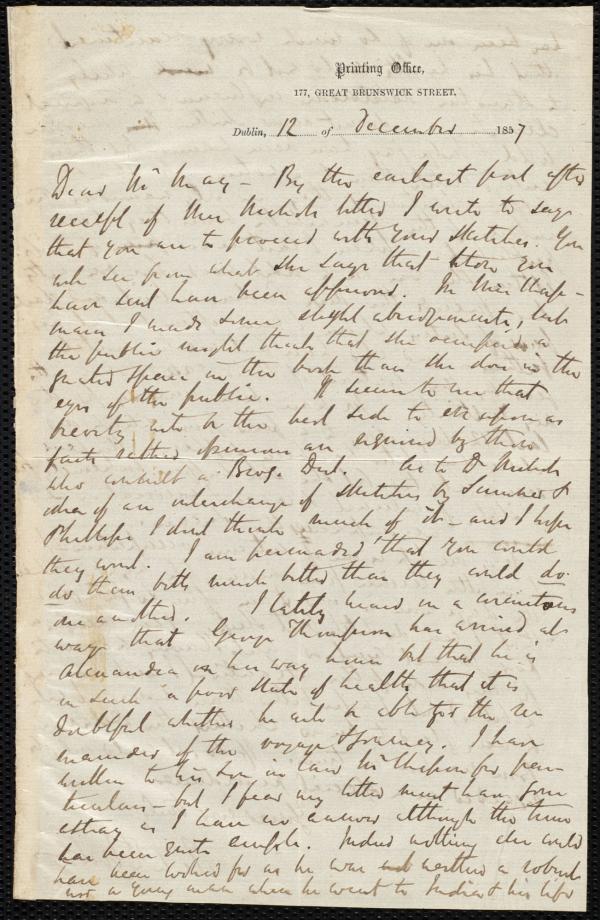 Printing Office,
177, GREAT BRUNSWICK STREET.
Dublin, 12 of December 1857
Dear Mr May – By the earliest post after
receipt of Miss Nichols letter I write to say
that you are to proceed with your sketches. You
will see from what she says that those you
have sent have been approved. In Miss Chap-
man I made some slight abridgements, lest
the public might think that she occupied a
greater space in the book than she does in the
eyes of the public. It seems to me that
brevity will be the best side to err upon as
facts rather opinions are required by those
who consult a Biog. Dict. As to Dr Nichols
idea of an interchange of sketches by Sumner &
Phillips I don't think much of it – and I hope
they wont. I am persuaded that you could
do them both much better than they could do
one another. I lately heard in a circuitous
way that George Thompson has arrived at
Alexandria on his way home but that he is
in such a poor state of health that it is
doubtful whether he will be able for the re
mainder of the voyage & journey. I have
written to his son in law Mr for par-
ticulars – but I fear my letter must have gone
astray as I have no answer although the time
has been quite ample. Indeed nothing else could
have been looked for as he was neither a robust
nor a young man when he went to India & his life